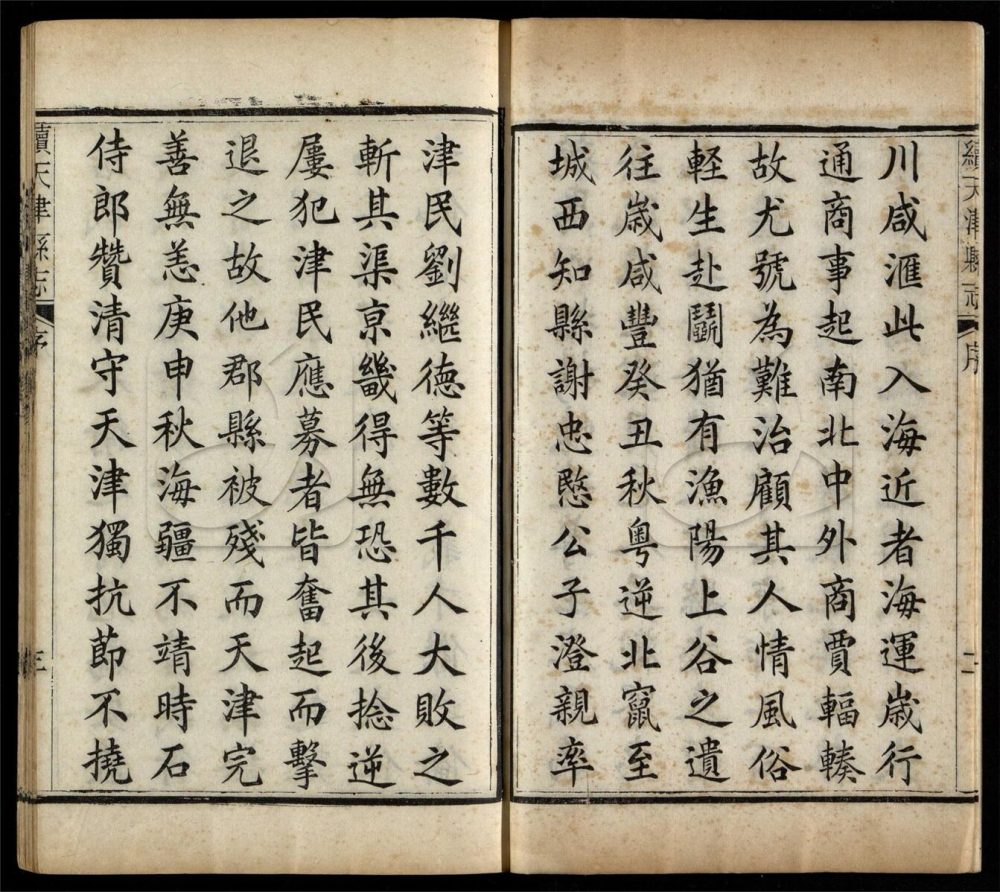 續天津縣志
序
二
川咸滙此入海近者海運歲行
通商事起南北中外商賈輻輳
故尤號為難治顧其人情風俗
輕生赴鬬猶有漁陽上谷之遺
往歲咸豐癸丑秋粵逆北竄至
城西知縣謝忠愍公子澄親率
津民劉繼德等數千人大敗之
斬其渠京畿得無恐其後捻逆
屢犯津民應募者皆奮起而擊
退之故他郡縣被殘而天津完
善無恙庚申秋海疆不靖時石
侍郎贊清守天津獨抗節不撓
續天津縣志
序
三